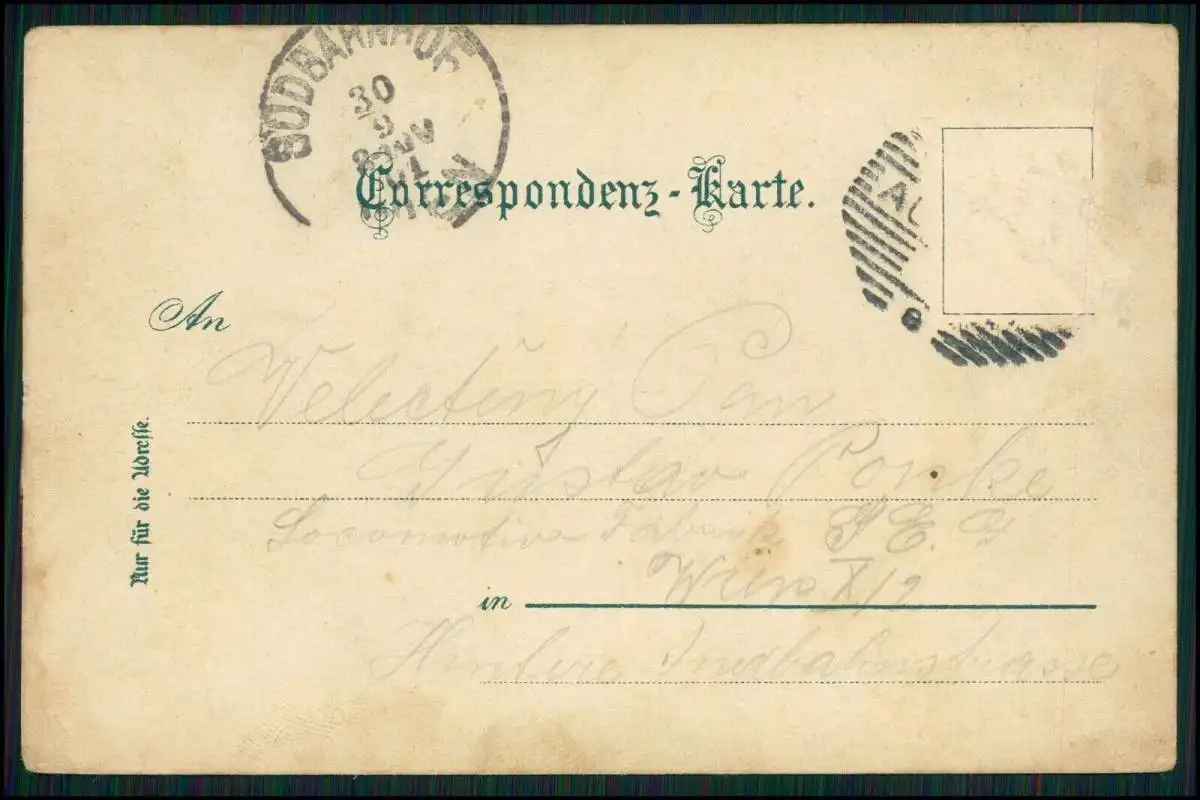 SÜDBAHNHOF
30
9
WIEN
Correspondenz-Karte.
AU
6
An
Velectěný Pan
Gustav
Locomotiv Fabrik S. E. G
in Wien X/2
Hintere Suedbahnstrasse
Nur für die Adresse.